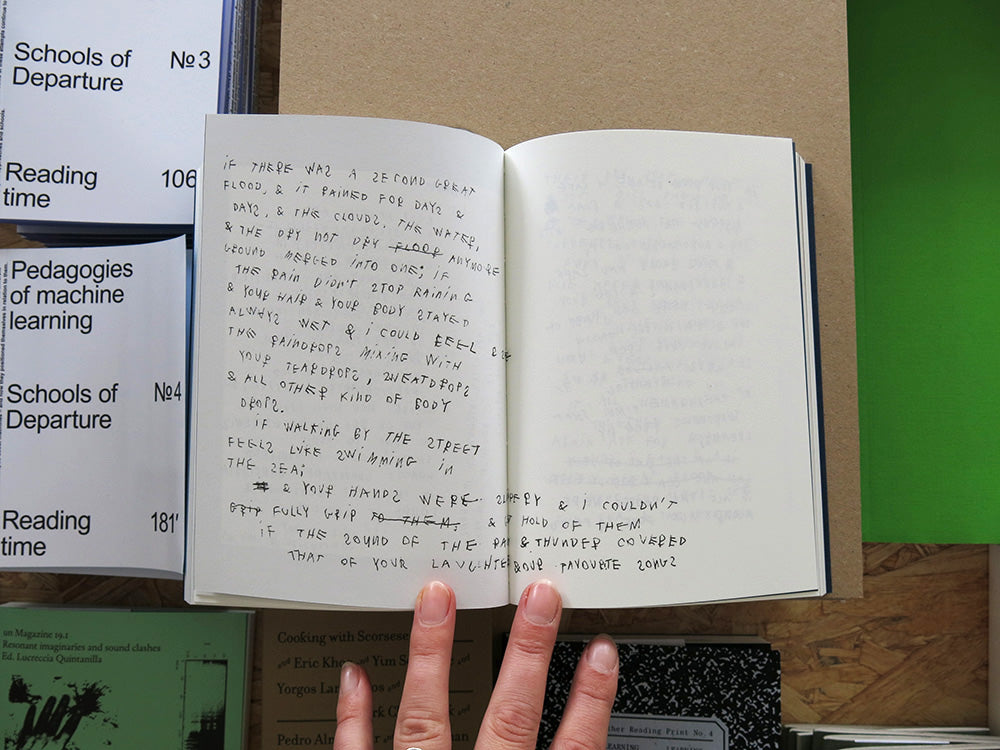 Schools of Departure №3
Reading time 106
Pedagogies of machine learning
Schools of Departure №4
Reading time 181'
IF THERE WAS A SECOND GREAT
FLOOD, & IT RAINED FOR DAYS &
DAYS, & THE CLOUDS, THE WATER,
& THE DRY NOT DRY FLOOR ANYMORE
GROUND MERGED INTO ONE; IF
THE RAIN DIDN'T STOP RAINING
& YOUR HAIR & YOUR BODY STAYED
ALWAYS WET & I COULD FEEL
THE RAINDROPS MIXING WITH
YOUR TEARDROPS, SWEATDROPS
& ALL OTHER KIND OF BODY
DROPS.
IF WALKING BY THE STREET
FEELS LIKE SWIMMING IN
THE SEA;
& YOUR HANDS WERE SLIPPERY & I COULDN'T
GRIP FULLY GRIP TO THEM. & HOLD OF THEM
IF THE SOUND OF THE RAIN & THUNDER COVERED
THAT OF YOUR LAUGHTER & OUR FAVOURITE SONGS
un Magazine 19.1
Resonant imaginaries and sound clashes
Ed. Lucreccia Quintanilla
Cooking with Scorsese
and Eric and Yim
Yorgos
Pedro
Reading Print No. 4